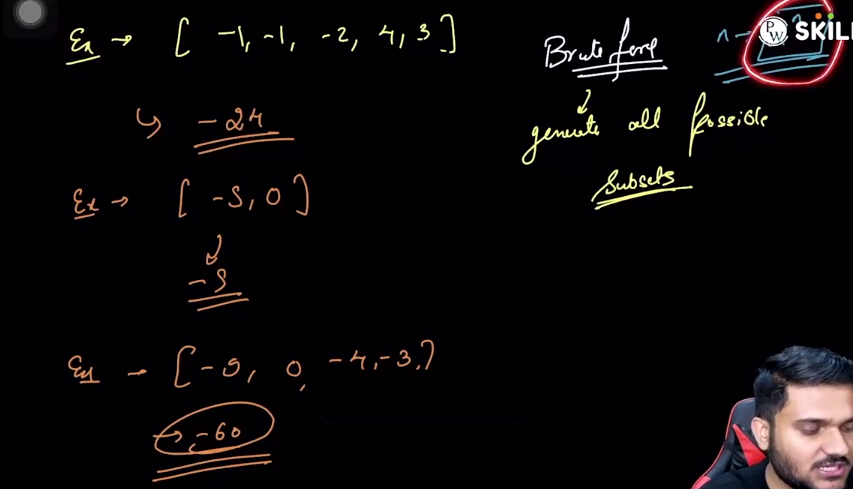 Ex → [ -1, -1, -2, 4, 3 ]
↳ -24
Ex → [ -5, 0 ]
-5
Ex → [ -5, 0, -4, -3 ]
→ -60
Brute force
generate all possible
Subsets
n →
PW SKILL